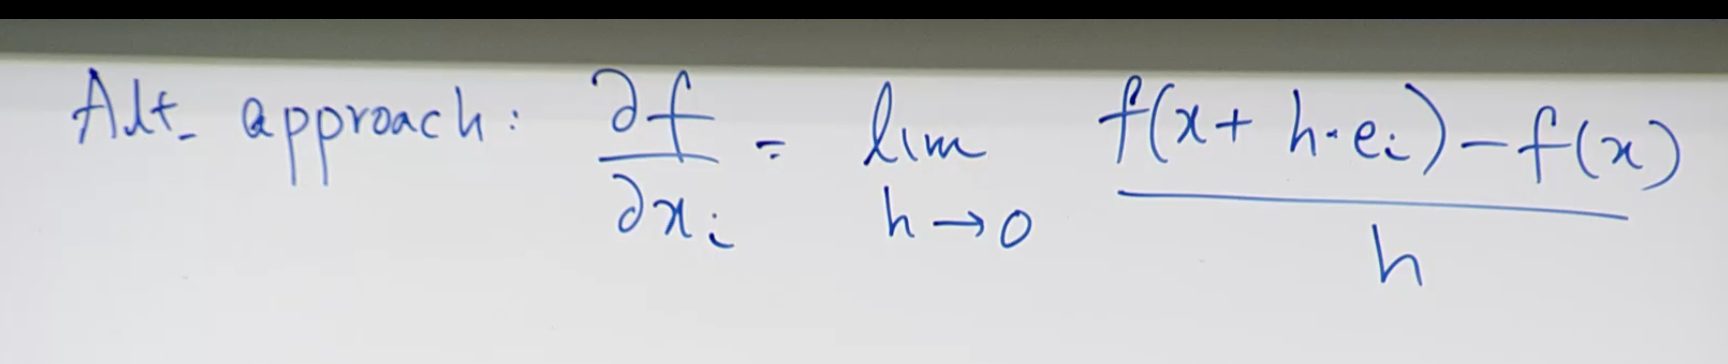 Alt. approach: ∂f/∂xᵢ = lim h→0 (f(x + h·eᵢ) − f(x))/h